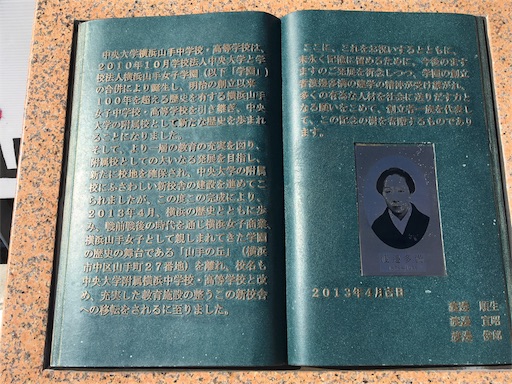 中央大学横浜山手中学校・高等学校は、
2010年10月学校法人中央大学と学
校法人横浜山手女子学園(以下「学園」)
の合併により誕生し、明治の創立以来
100年を超える歴史を有する横浜山手
女子中学校・高等学校を引き継ぎ、中央
大学の附属校として新たな歴史を歩まれ
ることになりました。
そして、より一層の教育の充実を図り、
附属校としての大いなる発展を目指し、
新たに校地を確保され、中央大学の附属
校にふさわしい新校舎の建設を進めてこ
られましたが、この度この完成により、
2013年4月、横浜の歴史とともに歩
み、戦前戦後の時代を通し横浜女子商業、
横浜山手女子として親しまれてきた学園
の歴史の舞台である「山手の丘」(横浜
市中区山手町27番地)を離れ、校名も
中央大学附属横浜中学校・高等学校と改
め、充実した教育施設の整うこの新校舎
への移転をされるに至りました。
ここに、これをお祝いするとともに、
末永く記憶に留めるために、今後のます
ますのご発展を祈念しつつ、学園の創立
の建学の精神が受け継がれ、
多くの有為な人材を社会に送りだす力と
なる願いをこめて、創立者一族を代表し
て、この記念の樹を寄贈するものであり
ます。
2013年4月吉日
渡邊 順生
渡邊 宜昭
渡邊 俊郎